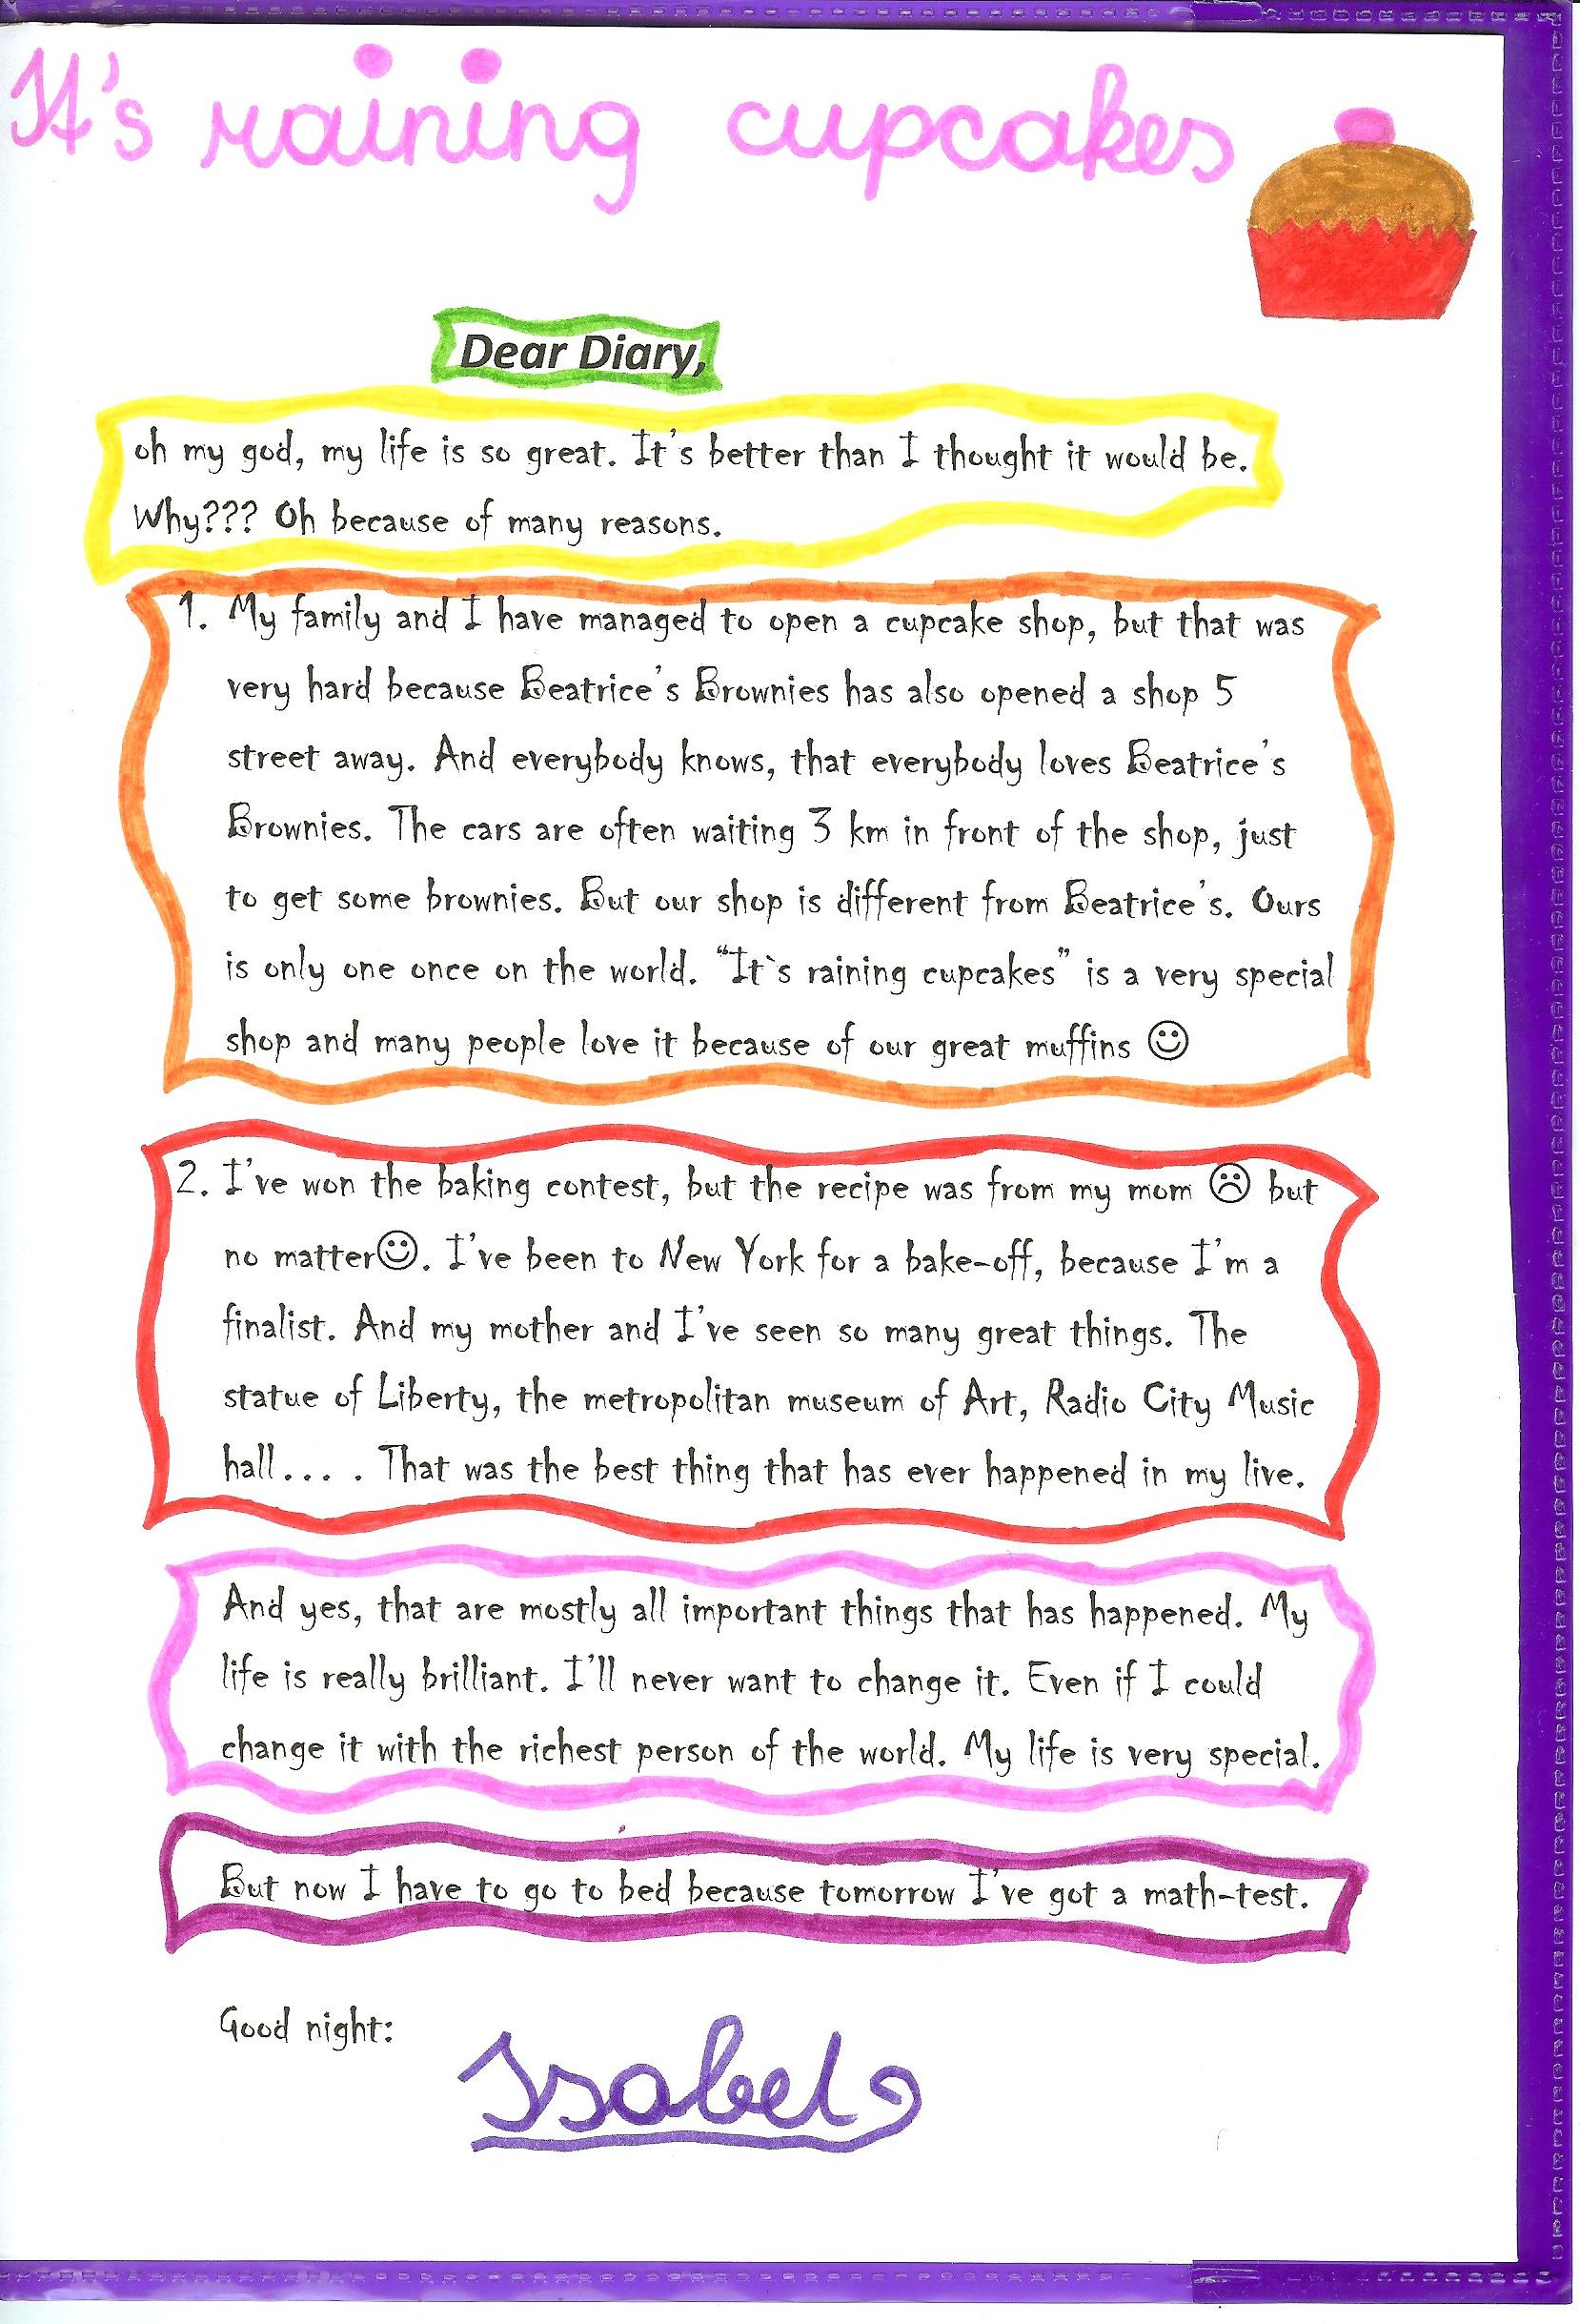 It's raining cupcakes
Dear Diary,
oh my god, my life is so great. It's better than I thought it would be.
Why??? Oh because of many reasons.
1. My family and I have managed to open a cupcake shop, but that was
very hard because Beatrice's Brownies has also opened a shop 5
street away. And everybody knows, that everybody loves Beatrice's
Brownies. The cars are often waiting 3 km in front of the shop, just
to get some brownies. But our shop is different from Beatrice's. Ours
is only one once on the world. "It`s raining cupcakes" is a very special
shop and many people love it because of our great muffins ☺
2. I've won the baking contest, but the recipe was from my mom ☹ but
no matter☺. I've been to New York for a bake-off, because I'm a
finalist. And my mother and I've seen so many great things. The
statue of Liberty, the metropolitan museum of Art, Radio City Music
hall... . That was the best thing that has ever happened in my live.
And yes, that are mostly all important things that has happened. My
life is really brilliant. I'll never want to change it. Even if I could
change it with the richest person of the world. My life is very special.
But now I have to go to bed because tomorrow I've got a math-test.
Good night:
Isabel